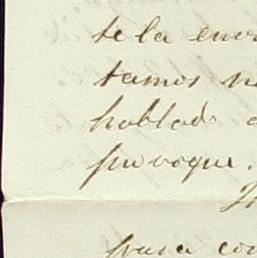 te la envi
tamos n
hablado
provoque.
para con